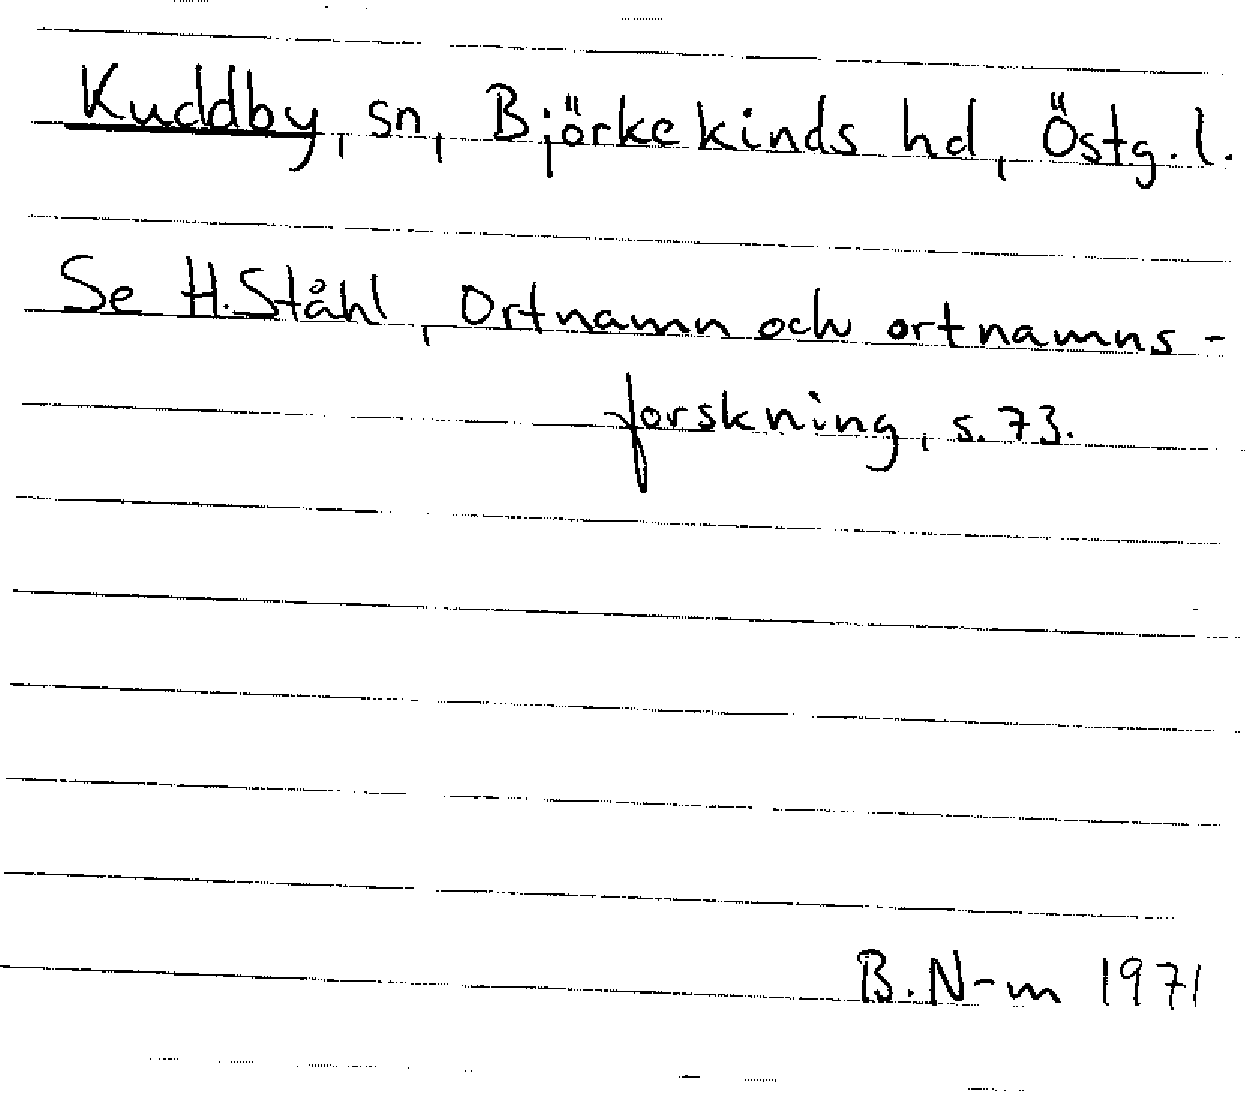 Kuddby, sn, Björkekinds hd, Östg. l.
Se H. Ståhl, Ortnamn och ortnamns-
forskning, s. 73.
B. N-m 1971